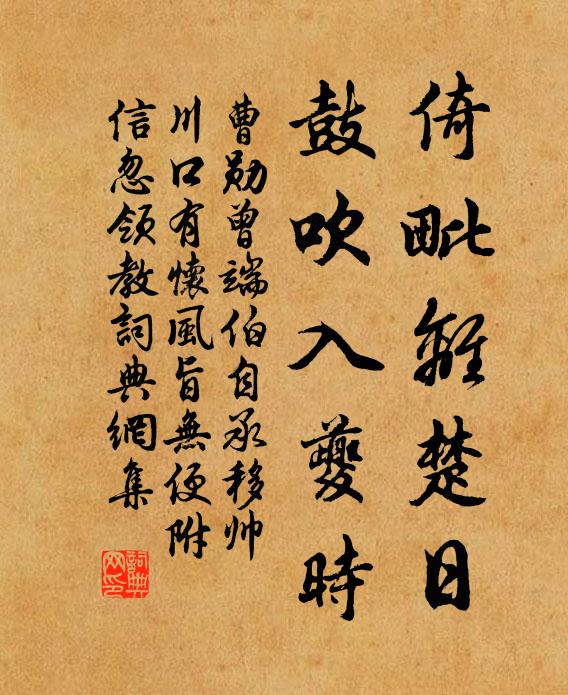 倚毗離楚日
鼓吹入夔時
曹勛曾端伯自承移帅
川口有懷風旨無便附
信忽領教詞典網集
詞典网印